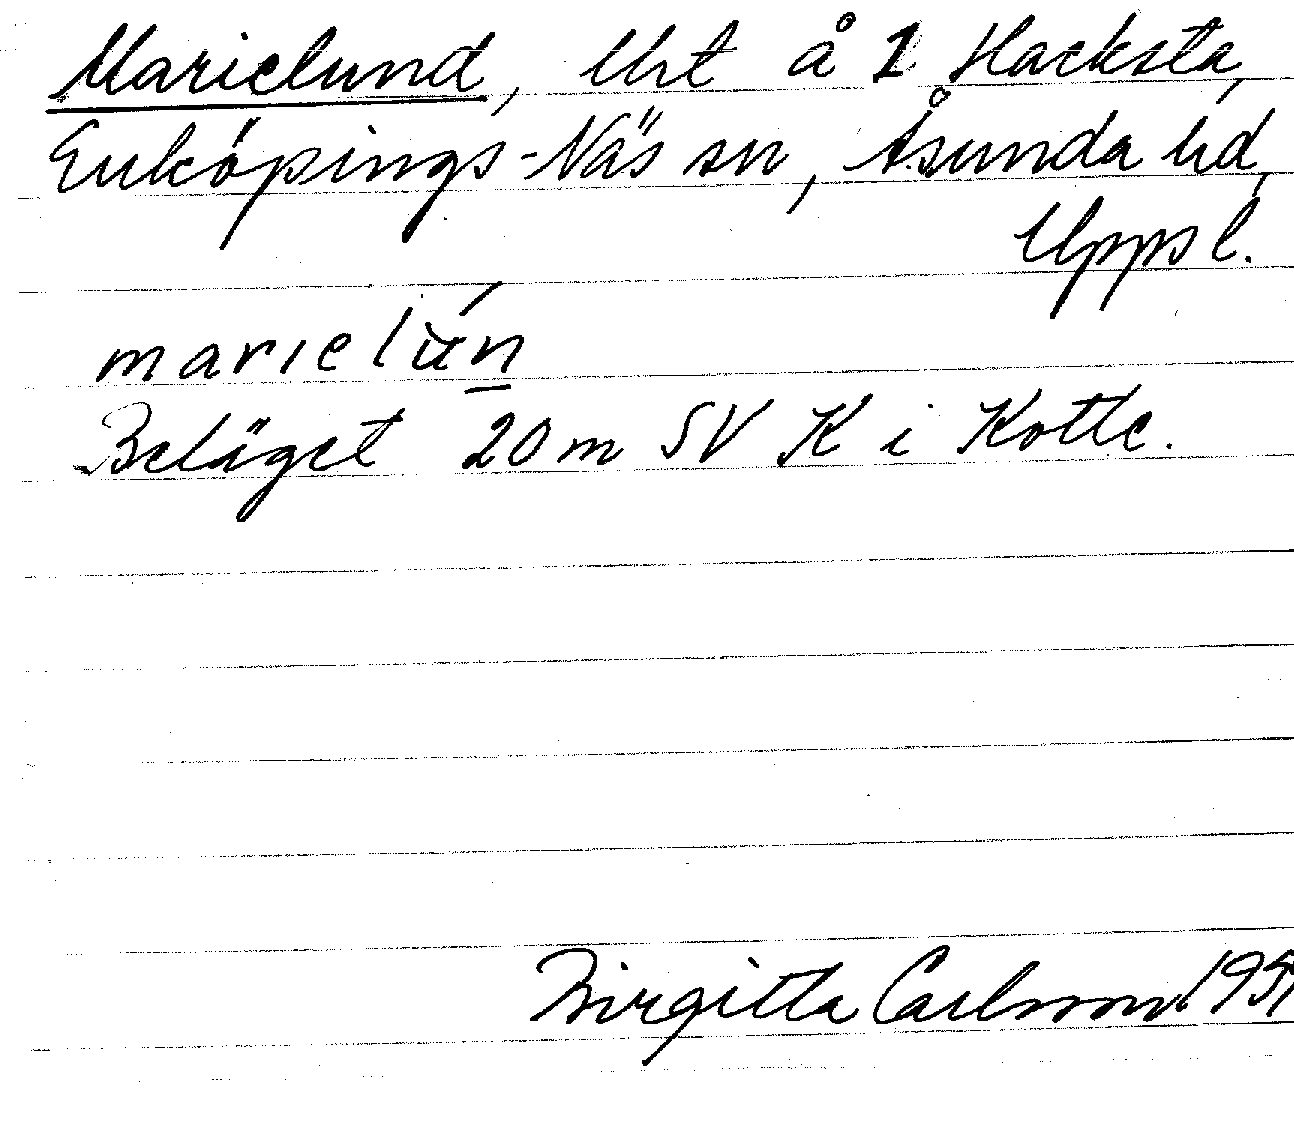 Marielund, Uht å 1 Hacksta,
Enköpings-Näs sn, Åsunda hd,
Uppsl.
marielùn
Beläget 20 m SV K i Kotte.
Birgitta Carlsson